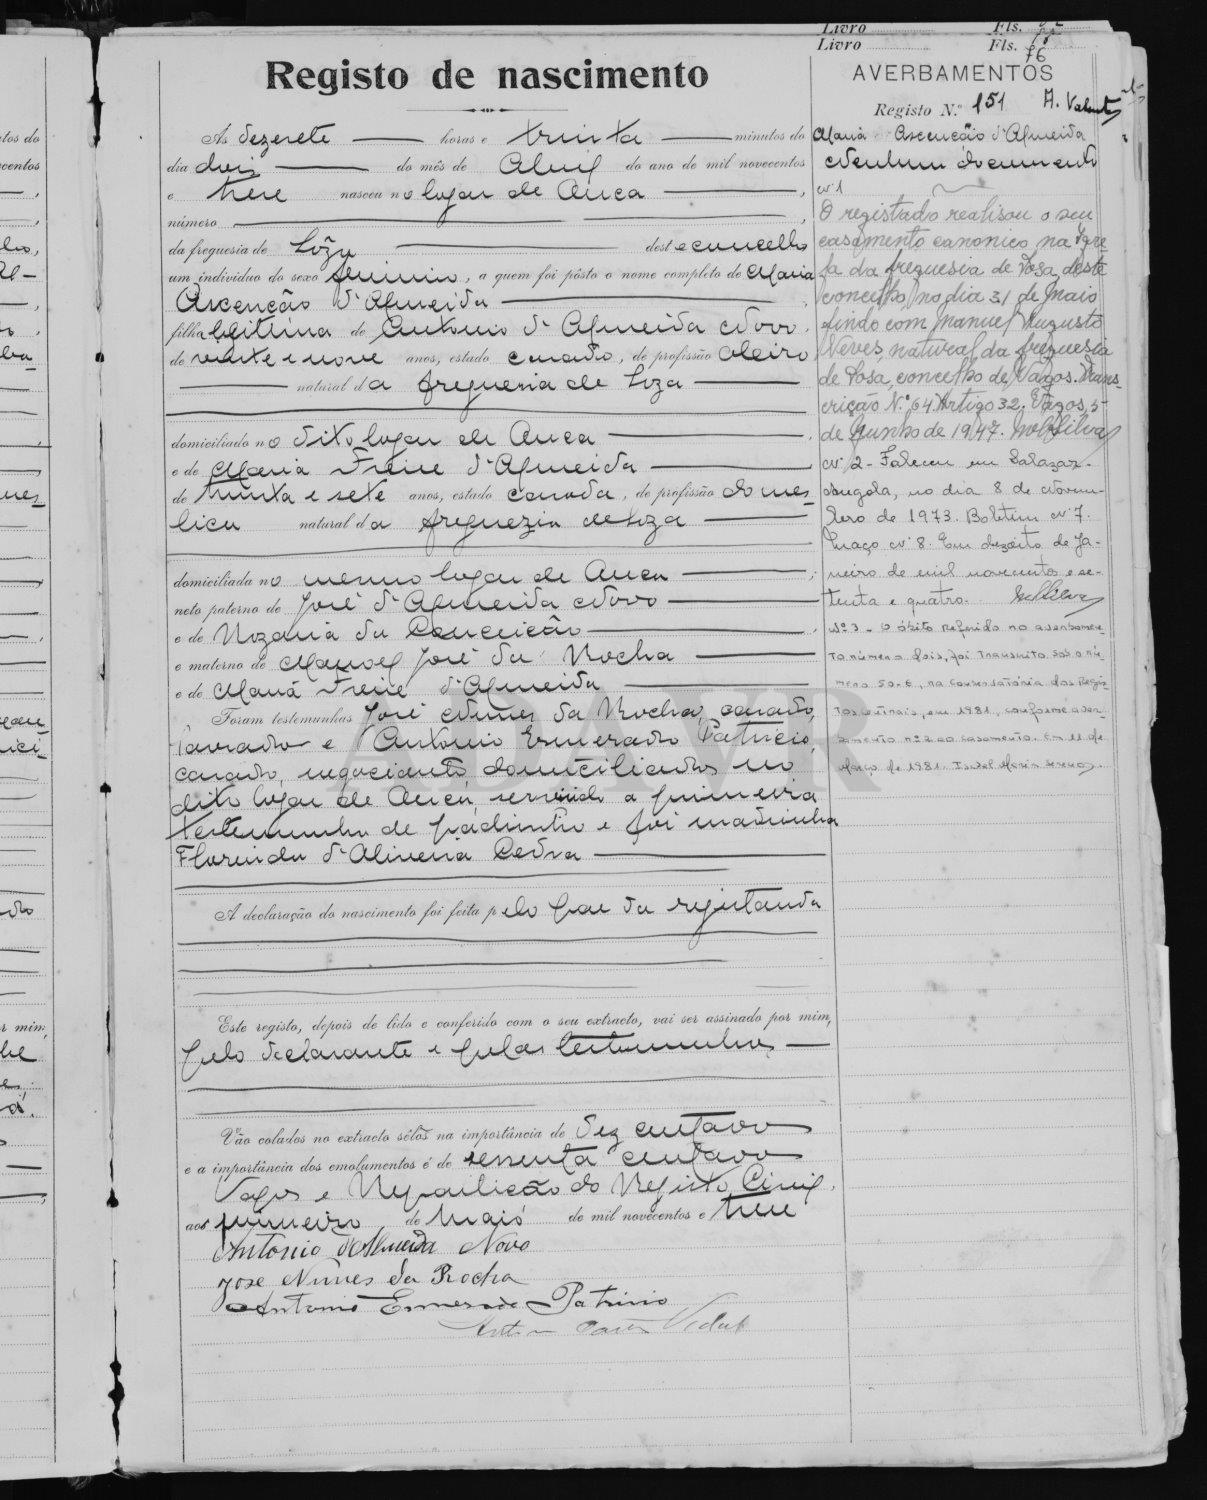 Livro Fls.
Livro Fls. 76
Registo de nascimento
AVERBAMENTOS
Registo N.º 151
As dezesete horas e trinta minutos do
dia dois do mês de Abril do ano de mil novecentos
e treze nasceu no logar de Ouca
número
da freguesia de Soza deste concelho
um individuo do sexo feminino, a quem foi pôsto o nome completo de Maria
Ascenção d'Almeida
filha legitima de Antonio d'Almeida Novo
de vinte e nove anos, estado casado, de profissão oleiro
natural da freguezia de Soza
domiciliado no dito logar de Ouca
e de Maria Freire d'Almeida
de trinta e sete anos, estado casada, de profissão domes-
tica natural da freguezia de Soza
domiciliada no mesmo logar de Ouca
neto paterno de José d'Almeida Novo
e de Rozaria da Conceição
e materno de Manoel José da Rocha
e de Maria Freire d'Almeida
Foram testemunhas José Nunes da Rocha, casado,
lavrador e Antonio Esmerado Patricio,
casado, negociante, domiciliados no
dito logar de Ouca, servindo a primeira
testemunha de padrinho e foi madrinha
Florinda d'Oliveira Cedra
A declaração do nascimento foi feita pelo pae da registanda
Este registo, depois de lido e conferido com o seu extracto, vai ser assinado por mim,
pelo declarante e pelas testemunhas
Vão colados no extracto sêlos na importância de dez centavos
e a importância dos emolumentos é de sessenta centavos
Vagos e Repartição do Registo Civil,
aos primeiro de Maio de mil novecentos e treze
Antonio d'Almeida Novo
Jose Nunes da Rocha
Antonio Esmerado Patricio
Maria Ascenção d'Almeida
Nenhum documento
Nº 1
O registado realisou o seu
casamento canonico, na Igre-
ja da freguesia de Sosa, deste
concelho, no dia 31 de Maio
findo com Manuel Augusto
Neves, natural da freguesia
de Sosa, concelho de Vagos. Trans-
crição N.º 64. Artigo 32. Vagos, 5
de Junho de 1947.
Nº 2 - Faleceu em Salazar-
Angola, no dia 8 de Novem-
bro de 1973. Boletim nº 7.
Maço nº 8. Em dezoito de Ja-
neiro de mil novecentos e se-
tenta e quatro.
Nº 3 - O óbito referido no averbamen-
to número dois, foi transcrito sob o nú-
mero 50-E, na Conservatória dos Regis-
tos Centrais, em 1981, conforme aver-
bamento nº 2 ao casamento. Em 11 de
Março de 1981.
ADAVR